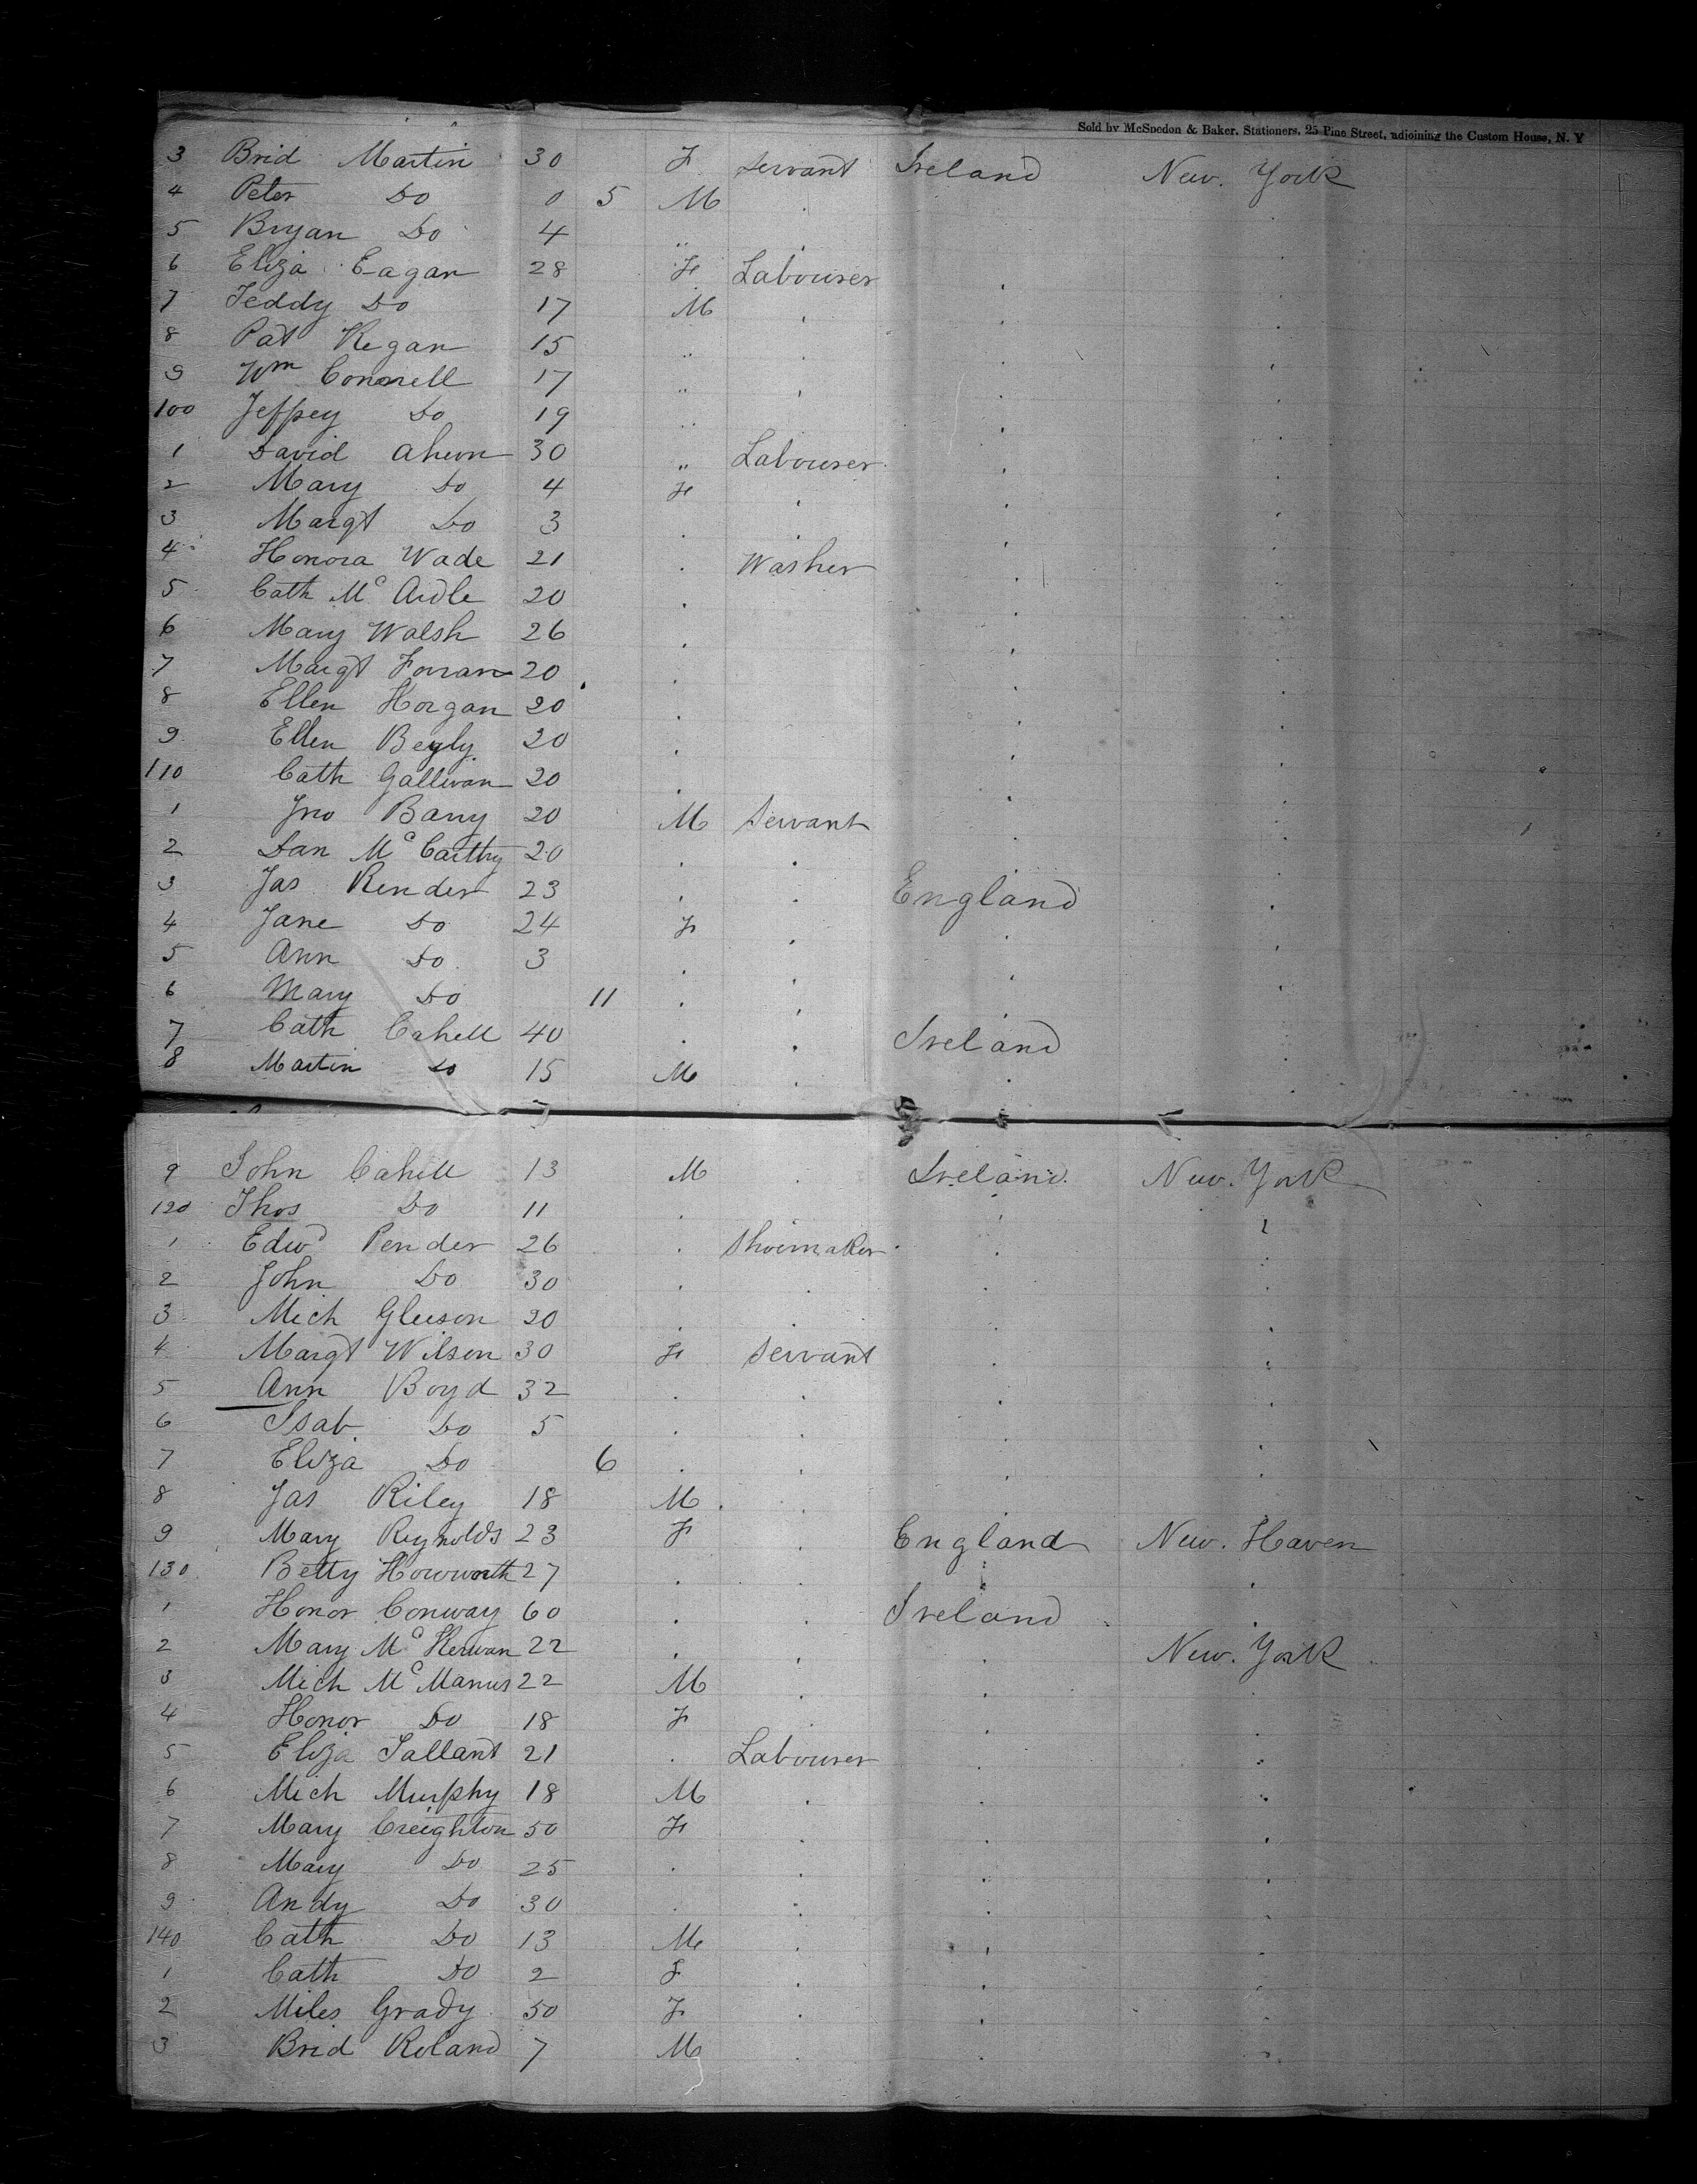 Sold by McSpedon & Baker, Stationers, 25 Pine Street, adjoining the Custom House, N. Y
3 Brid Martin 30 F servant Ireland New. York
4 Peter Do 0 5 M
5 Bryan Do 4 "
6 Eliza Eagan 28 F Labourer
7 Teddy Do 17 M
8 Pat Regan 15 "
9 Wm Connell 17 "
100 Jeffrey Do 19 "
1 David Ahern 30 " Labourer
2 Mary Do 4 F
3 Margt Do 3
4 Honora Wade 21 Washer
5 Cath Mc Ardle 20
6 Mary Walsh 26
7 Margt 20
8 Ellen Horgan 20
9 Ellen Begly 20
110 Cath Gallivan 20
1 Jno Barry 20 M Servant
2 Dan Mc Carthy 20
3 Jas Render 23 England
4 Jane Do 24 F
5 Ann Do 3
6 Mary Do 11
7 Cath Cahell 40 Ireland
8 Martin Do 15 M
9 John Cahell 13 M Ireland New. York
120 Thos Do 11
1 Edwd Pender 26 Shoemaker
2 John Do 30
3 Mich Gleeson 20
4 Margt Wilson 30 F Servant
5 Ann Boyd 32
6 Isab Do 5
7 Eliza Do 6
8 Jas Riley 18 M
9 Mary Reynolds 23 F England New. Haven
130 Betty Howworth 27
1 Honor Conway 60 Ireland
2 Mary Mc Kerwan 22 New. York
3 Mich Mc Manus 22 M
4 Honor Do 18 F
5 Eliza Tallant 21 Labourer
6 Mich Murphy 18 M
7 Mary Creighton 50 F
8 Mary Do 25
9 Andy Do 30
140 Cath Do 13 M
1 Cath Do 2 F
2 Miles Grady 50 F
3 Brid Roland 7 M